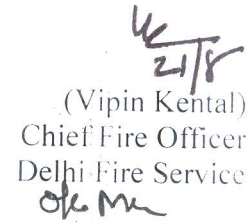 21/8
(Vipin Kental)
Chief Fire Officer
Delhi Fire Service